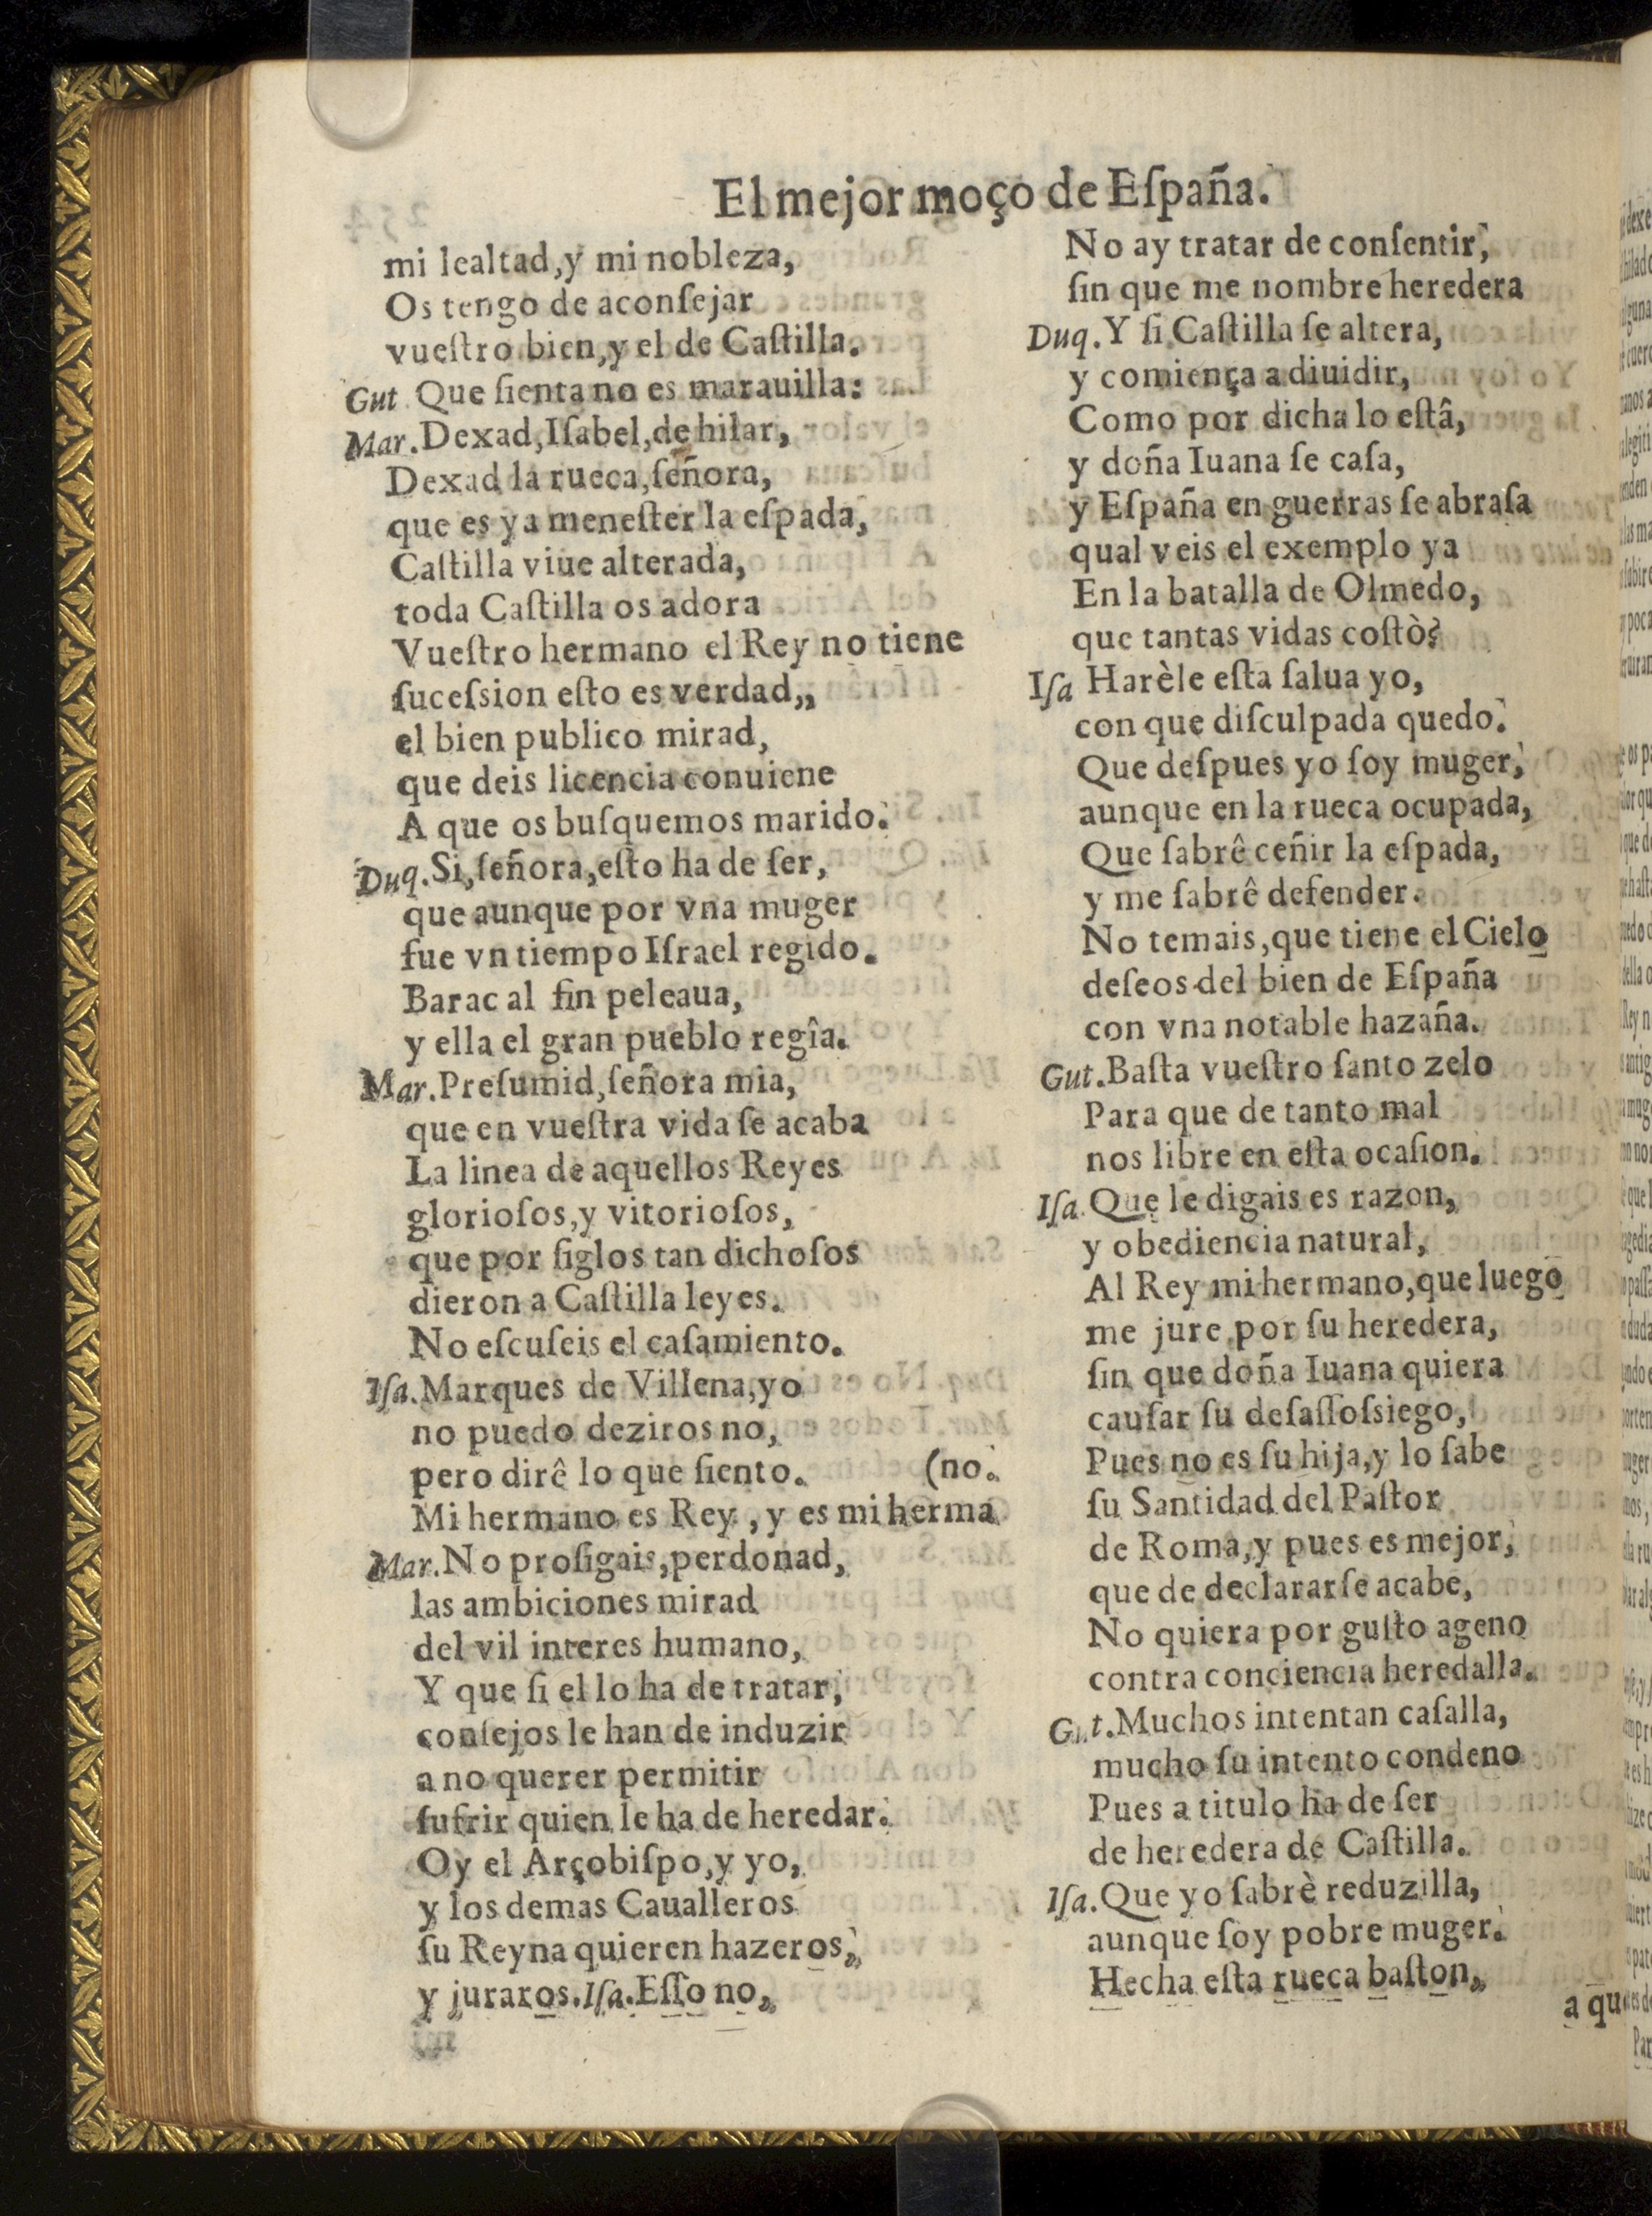 El mejor moço de Eſpaña.
mi lealtad,y mi nobleza,
Os tengo de aconſejar
vueſtro bien,y el de Caſtilla.
Gut Que ſienta no es marauilla:
Mar.Dexad,Iſabel,de hilar,
Dexad la rueca,ſeñora,
que es ya meneſter la eſpada,
Caſtilla viue alterada,
toda Caſtilla os adora
Vueſtro hermano el Rey no tiene
ſuceſsion eſto es verdad,,
el bien publico mirad,
que deis licencia conuiene
A que os buſquemos marido.
Duq.Si,ſeñora,eſto ha de ſer,
que aunque por vna muger
fue vn tiempo Iſrael regido.
Barac al fin peleaua,
y ella el gran pueblo regîa.
Mar.Preſumid,ſeñora mia,
que en vueſtra vida ſe acaba
La linea de aquellos Reyes
glorioſos,y vitorioſos,
que por ſiglos tan dichoſos
dieron a Caſtilla leyes.
No eſcuſeis el caſamiento.
Iſa.Marques de Villena,yo
no puedo deziros no,
pero dirê lo que ſiento. (no.
Mi hermano es Rey , y es mi herma
Mar.No proſigais,perdonad,
las ambiciones mirad
del vil interes humano,
Y que ſi el lo ha de tratar,
conſejos le han de induzir
a no querer permitir
ſufrir quien le ha de heredar.
Oy el Arçobiſpo,y yo,
y los demas Caualleros
ſu Reyna quieren hazeros,
y juraros.Iſa.Eſſo no,
No ay tratar de conſentir,
ſin que me nombre heredera
Duq.Y ſi Caſtilla ſe altera,
y comiença a diuidir,
Como por dicha lo eſtâ,
y doña Iuana ſe caſa,
y Eſpaña en guerras ſe abraſa
qual veis el exemplo ya
En la batalla de Olmedo,
que tantas vidas coſtò?
Iſa Harèle eſta ſalua yo,
con que diſculpada quedo.
Que deſpues yo ſoy muger,
aunque en la rueca ocupada,
Que ſabrê ceñir la eſpada,
y me ſabrê defender.
No temais,que tiene el Cielo
deſeos del bien de Eſpaña
con vna notable hazaña.
Gut.Baſta vueſtro ſanto zelo
Para que de tanto mal
nos libre en eſta ocaſion.
Iſa.Que le digais es razon,
y obediencia natural,
Al Rey mi hermano,que luego
me jure por ſu heredera,
ſin que doña Iuana quiera
cauſar ſu deſaſſoſsiego,
Pues no es ſu hija,y lo ſabe
ſu Santidad del Paſtor
de Roma,y pues es mejor,
que de declararſe acabe,
No quiera por guſto ageno
contra conciencia heredalla.
Gut.Muchos intentan caſalla,
mucho ſu intento condeno
Pues a titulo ha de ſer
de heredera de Caſtilla.
Iſa.Que yo ſabrè reduzilla,
aunque ſoy pobre muger.
Hecha eſta rueca baſton,
a qu